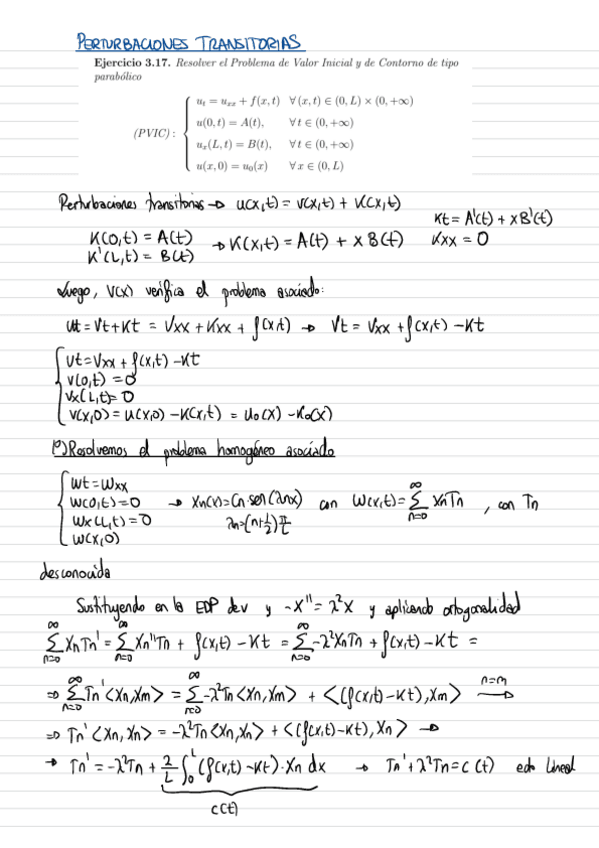 PERTURBACIONES TRANSITORIAS
Ejercicio 3.17. Resolver el Problema de Valor Inicial y de Contorno de tipo
parabólico
(PVIC) : { u_t = u_xx + f(x, t) ∀(x, t) ∈ (0, L) × (0, +∞)
u(0, t) = A(t), ∀t ∈ (0, +∞)
u_x(L, t) = B(t), ∀t ∈ (0, +∞)
u(x, 0) = u_0(x) ∀x ∈ (0, L)
Perturbaciones transitorias → u(x,t) = v(x,t) + K(x,t)
K(0,t) = A(t)
K'(L,t) = B(t) → K(x,t) = A(t) + x B(t)
Kt = A'(t) + x B'(t)
Kxx = 0
Luego, V(x) verifica el problema asociado:
ut = Vt + Kt = Vxx + Kxx + f(x,t) → Vt = Vxx + f(x,t) - Kt
{ Vt = Vxx + f(x,t) - Kt
V(0,t) = 0
Vx(L,t) = 0
V(x,0) = u(x,0) - K(x,t) = u0(x) - K0(x)
1º) Resolvemos el problema homogéneo asociado
{ Wt = Wxx
W(0,t) = 0 → Xn(x) = Cn sen(λnx) con W(x,t) = ∞ Σ n=0 XnTn , con Tn
Wx(L,t) = 0 λn = (n+1/2) π/L
W(x,0)
desconocida
Sustituyendo en la EDP de v y -X'' = λ²X y aplicando ortogonalidad
∞ Σ n=0 XnTn' = ∞ Σ n=0 Xn''Tn + f(x,t) - Kt = ∞ Σ n=0 -λ²XnTn + f(x,t) - Kt =
⇒ ∞ Σ n=0 Tn' <Xn, Xm> = ∞ Σ n=0 -λ²Tn <Xn, Xm> + <(f(x,t) - Kt), Xm> n=m →
⇒ Tn' <Xn, Xn> = -λ²Tn <Xn, Xn> + <(f(x,t) - Kt), Xn> →
→ Tn' = -λ²Tn + 2/L ∫₀ᴸ (f(x,t) - Kt) · Xn dx → Tn' + λ²Tn = c(t) edo lineal
c(t)